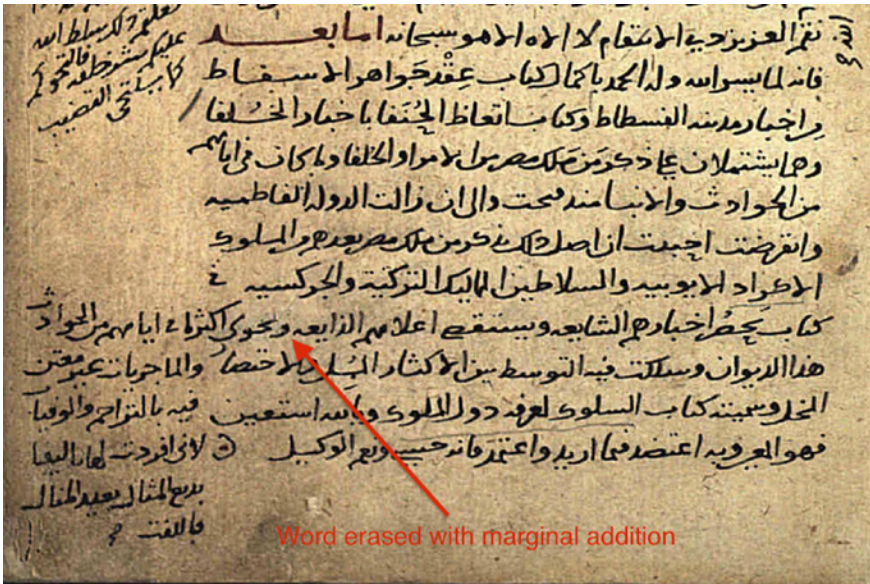 نقم العزيز ذي الانتقام لا اله الا هو سبحانه اما بعد
فانه لما يسر الله وله الحمد باكمال كتاب عِقْد جَواهر الاسفاط
من اخبار مدينه الفسطاط وكتاب اتعاظ الحُنَفا باخبار الخُلفا
وهما يشتملان على ذكر مَن مَلك مصر من الامرا والخلفا وما كان في ايامهم
من الحوادث والانبا منذ فتحت والى ان زالت الدوله الفاطميه
وانقرضت احببت ان اصل ذلك بذكر من ملك مصر بعدهم من الملوك
الاكراد الايوبيه والسلاطين المماليك التركية والجركسيه في
كتاب يَحصُر اخبارهم الشايعه ويستقصى اعلامهم الذايعه ويحوى اكثر ما في ايامهم من الحوادث
هذا الديوان وسلكت فيه التوسط بين الاكثار المُمِل والاختصار
والماجريات غير معتن
المخل وسميته كتاب السلوك لمعرفه دول الملوك وبالله استعين
فيه بالتراجم والوفيات
فهو المعين وبه اعتضد فيما اريد واعتمد فانه حسبي ونعم الوكيل
لانى افردت لها تاليفا
بديع المثال بعيد المنال
فالفت
Word erased with marginal addition